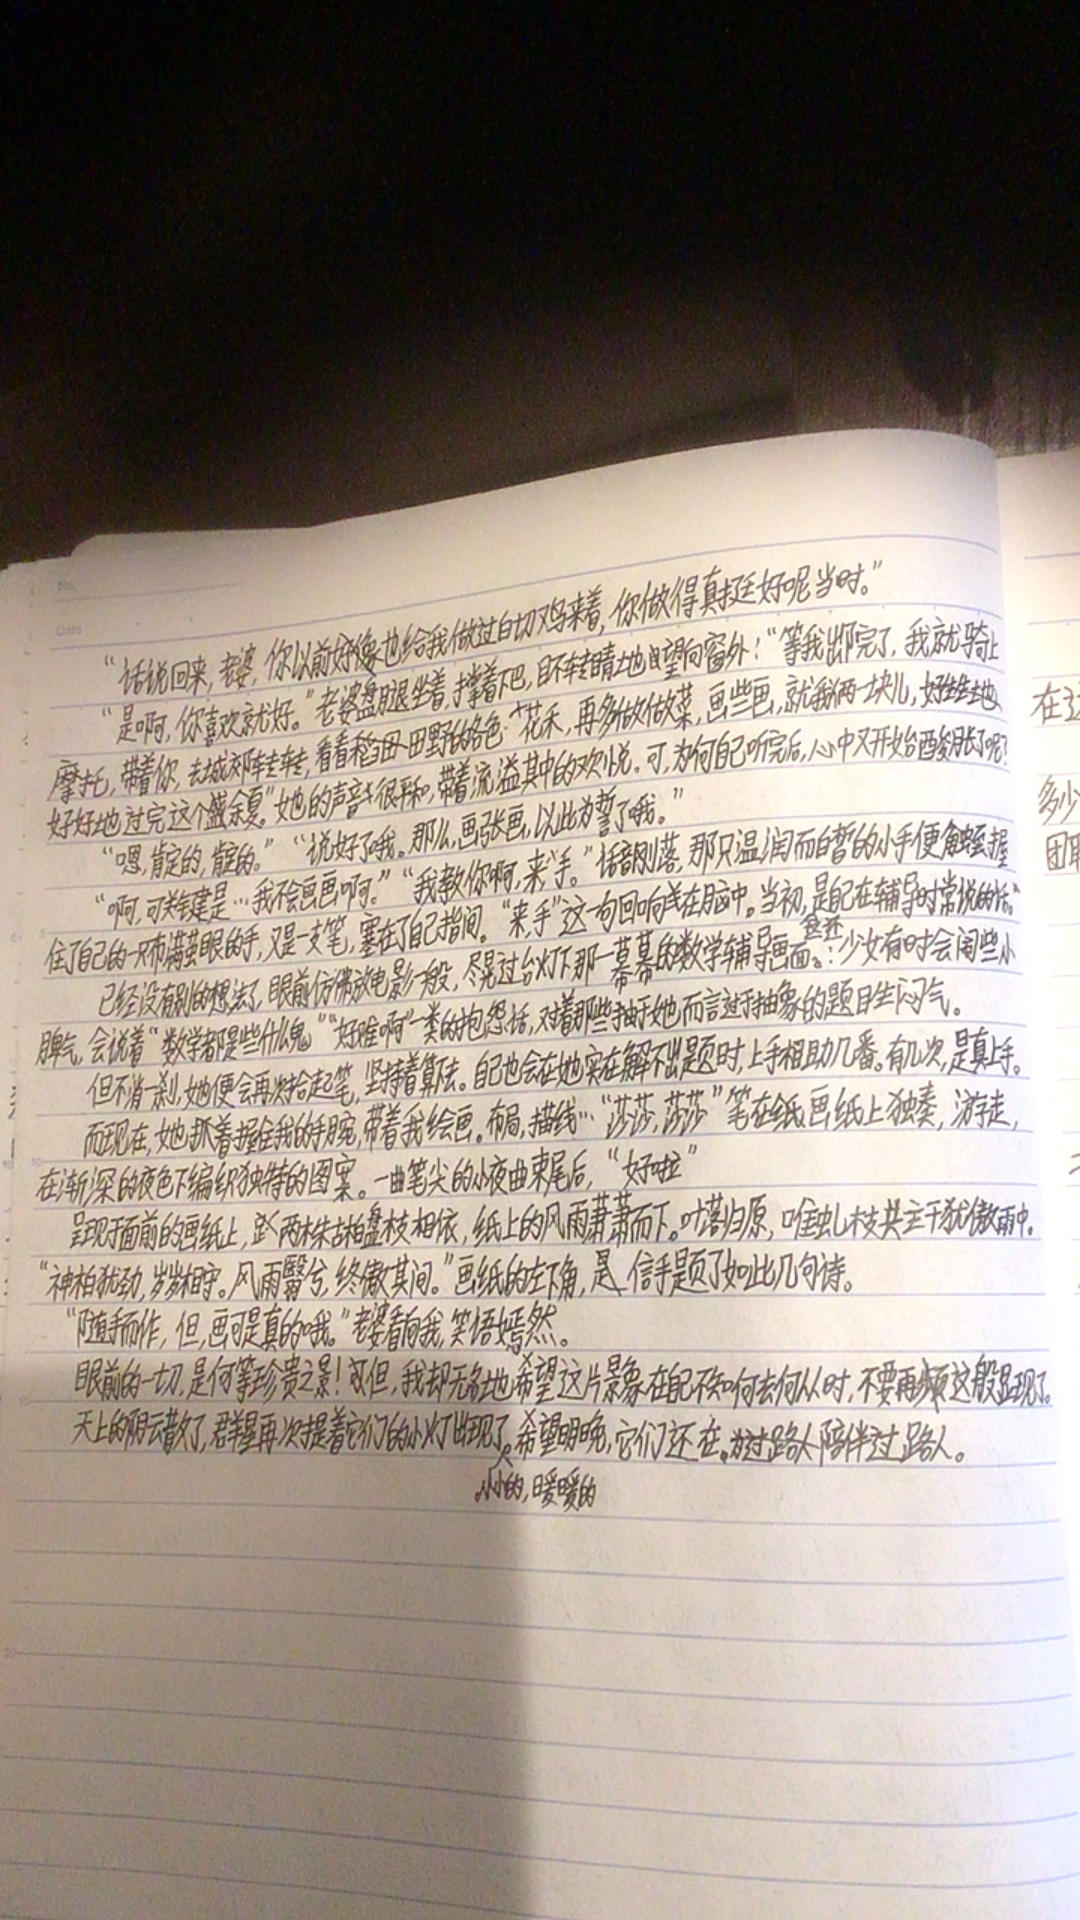 “话说回来,老婆,你以前好像也给我做过白切鸡来着,你做得真挺好呢当时。”
“是啊,你喜欢就好。”老婆盘腿坐着,撑着下巴,目不转睛地望向窗外:“等我出院完了,我就骑上
摩托,带着你,去城郊转转,看看稻田、田野的各色花禾,再多做做菜,画些画,就我俩一块儿,好生生地、
好好地过完这个盛余夏。”她的声音很平和,带着流溢其中的欢悦。可,为何自己听完后,心中又开始酸胀了呢?
“嗯,肯定的,肯定的。” “说好了哦。那么,画张画,以此为誓了哦。”
“啊,可关键是…我不会画画啊。” “我教你啊,来,手。”话音刚落,那只温润而白皙的小手便触握
住了自己的一只布满茧眼的手,又是一支笔,塞在了自己指间。“来手”这一句回响在脑中。当初,是自己在辅导时常说的话。
已经没有别的想法了,眼前仿佛放电影一般,尽晃过台灯下那一幕幕的数学辅导画面:少女有时会闹些小
脾气,会说着“数学都是些什么鬼”“好难啊”一类的抱怨话,对着那些于她而言过于抽象的题目生闷气。
但不消一刹,她便会再次拾起笔,坚持着算下去。自己也会在她实在解不出题时,上手相助几番。有几次,是真上手。
而现在,她抓着握住我的手腕,带着我绘画。布局,描线…“莎莎,莎莎”笔在纸画纸上独奏,游走,
在渐深的夜色下编织独特的图案。一曲笔尖的小夜曲束尾后,“好啦”
呈现于面前的画纸上,两株古柏盘枝相依,纸上的风雨萧萧而下。叶落归原,唯虬枝共主干犹傲雨中。
“神柏犹劲,岁岁相守。风雨翳兮,终傲其间。”画纸的左下角,是信手题了如此几句诗。
“随手而作,但,画可是真的哦。”老婆看向我,笑语嫣然。
眼前的一切,是何等珍贵之景!可但,我却无名地希望这片景象在自己不知何去何从时,不要再频这般显现了。
天上的阴云散了,群星再次提着它们的小灯出现了,希望明晚,它们还在。为过路人陪伴过路人。
小小的,暖暖的
在这
多少
团聚